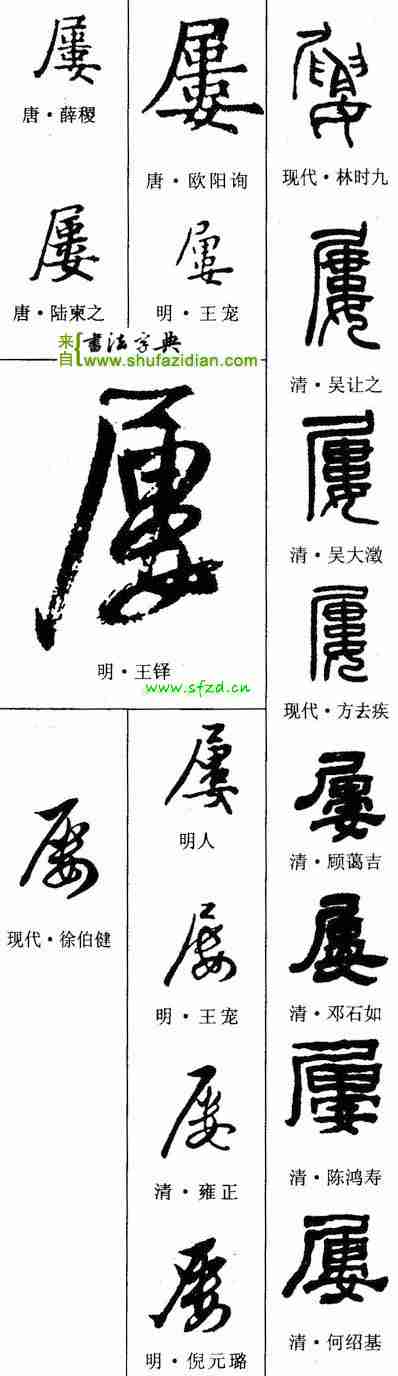 屢
唐·薛稷
屢
唐·陆柬之
屢
唐·欧阳询
屢
明·王宠
来自{書法字典
www.shufazidian.com
屢
明·王铎
www.sfzd.cn
屢
现代·徐伯健
屢
明人
屢
明·王宠
屢
清·雍正
屢
明·倪元璐
屢
现代·林时九
屢
清·吴让之
屢
清·吴大澂
屢
现代·方去疾
屢
清·顾蔼吉
屢
清·邓石如
屢
清·陈鸿寿
屢
清·何绍基